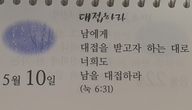 대접하라
남에게
대접을 받고자 하는 대로
너희도
남을 대접하라
(눅 6:31)
5월 10일